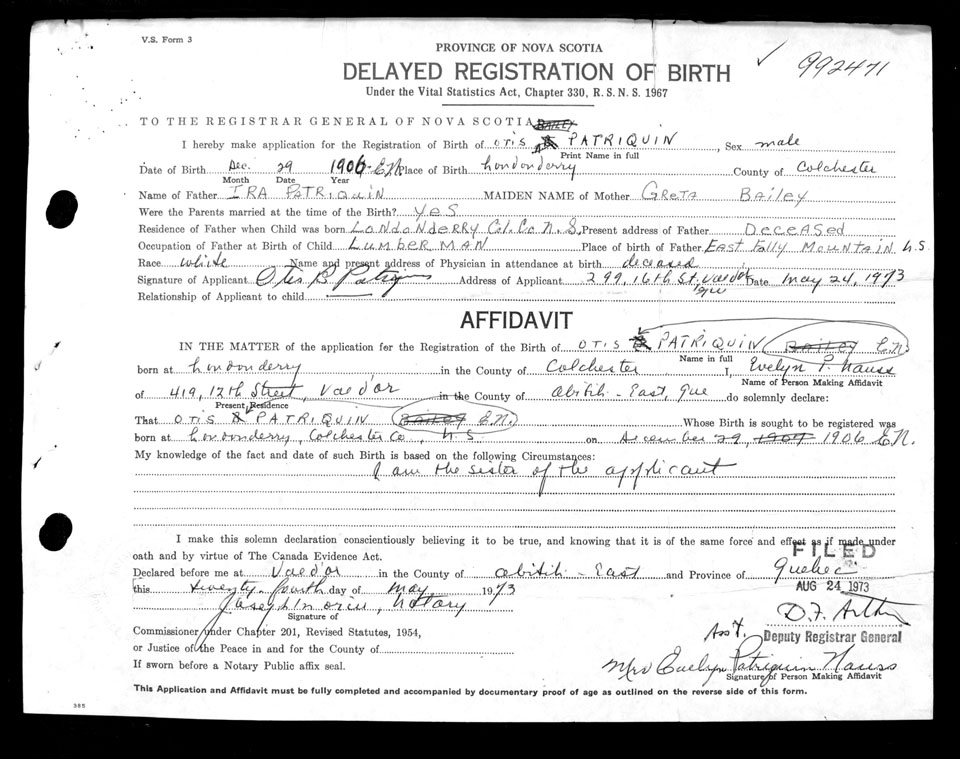 V.S. Form 3
992471
PROVINCE OF NOVA SCOTIA
DELAYED REGISTRATION OF BIRTH
Under the Vital Statistics Act, Chapter 330, R. S. N. S. 1967
TO THE REGISTRAR GENERAL OF NOVA SCOTIA BAILEY
I hereby make application for the Registration of Birth of OTIS B PATRIQUIN, Sex male
Print Name in full
Date of Birth Dec. 29 1906 E.N. Place of Birth Londonderry County of Colchester
Month Date Year
Name of Father IRA PATRIQUIN MAIDEN NAME of Mother GRETA BAILEY
Were the Parents married at the time of the Birth? YES
Residence of Father when Child was born LONDONDERRY Col. Co. N. S. Present address of Father DECEASED
Occupation of Father at Birth of Child LUMBERMAN Place of birth of Father EAST FOLLY MOUNTAIN N.S.
Race white Name and present address of Physician in attendance at birth deceased
Signature of Applicant Otis B Patriquin Address of Applicant 299, 16th St, Vald'or Que Date May 24, 1973
Relationship of Applicant to child
AFFIDAVIT
IN THE MATTER of the application for the Registration of the Birth of OTIS B PATRIQUIN BAILEY E.N.
Name in full
born at Londonderry in the County of Colchester I, Evelyn P. Nauss
Name of Person Making Affidavit
of 419, 12th Street, Val d'or in the County of Abitibi-East, Que do solemnly declare:
Present Residence
That OTIS B PATRIQUIN (BAILEY E.N.) Whose Birth is sought to be registered was
born at Londonderry, Colchester Co, N.S on December 29, 1907 1906 E.N.
My knowledge of the fact and date of such Birth is based on the following Circumstances:
I am the sister of the applicant
I make this solemn declaration conscientiously believing it to be true, and knowing that it is of the same force and effect as if made under
oath and by virtue of The Canada Evidence Act.
FILED
Declared before me at Val d'or in the County of Abitibi-East and Province of Quebec
AUG 24 1973
this twenty fourth day of May 1973
Notary
Signature of
Commissioner under Chapter 201, Revised Statutes, 1954,
Ass't. Deputy Registrar General
or Justice of the Peace in and for the County of
Mrs Evelyn Patriquin Nauss
If sworn before a Notary Public affix seal.
Signature of Person Making Affidavit
This Application and Affidavit must be fully completed and accompanied by documentary proof of age as outlined on the reverse side of this form.